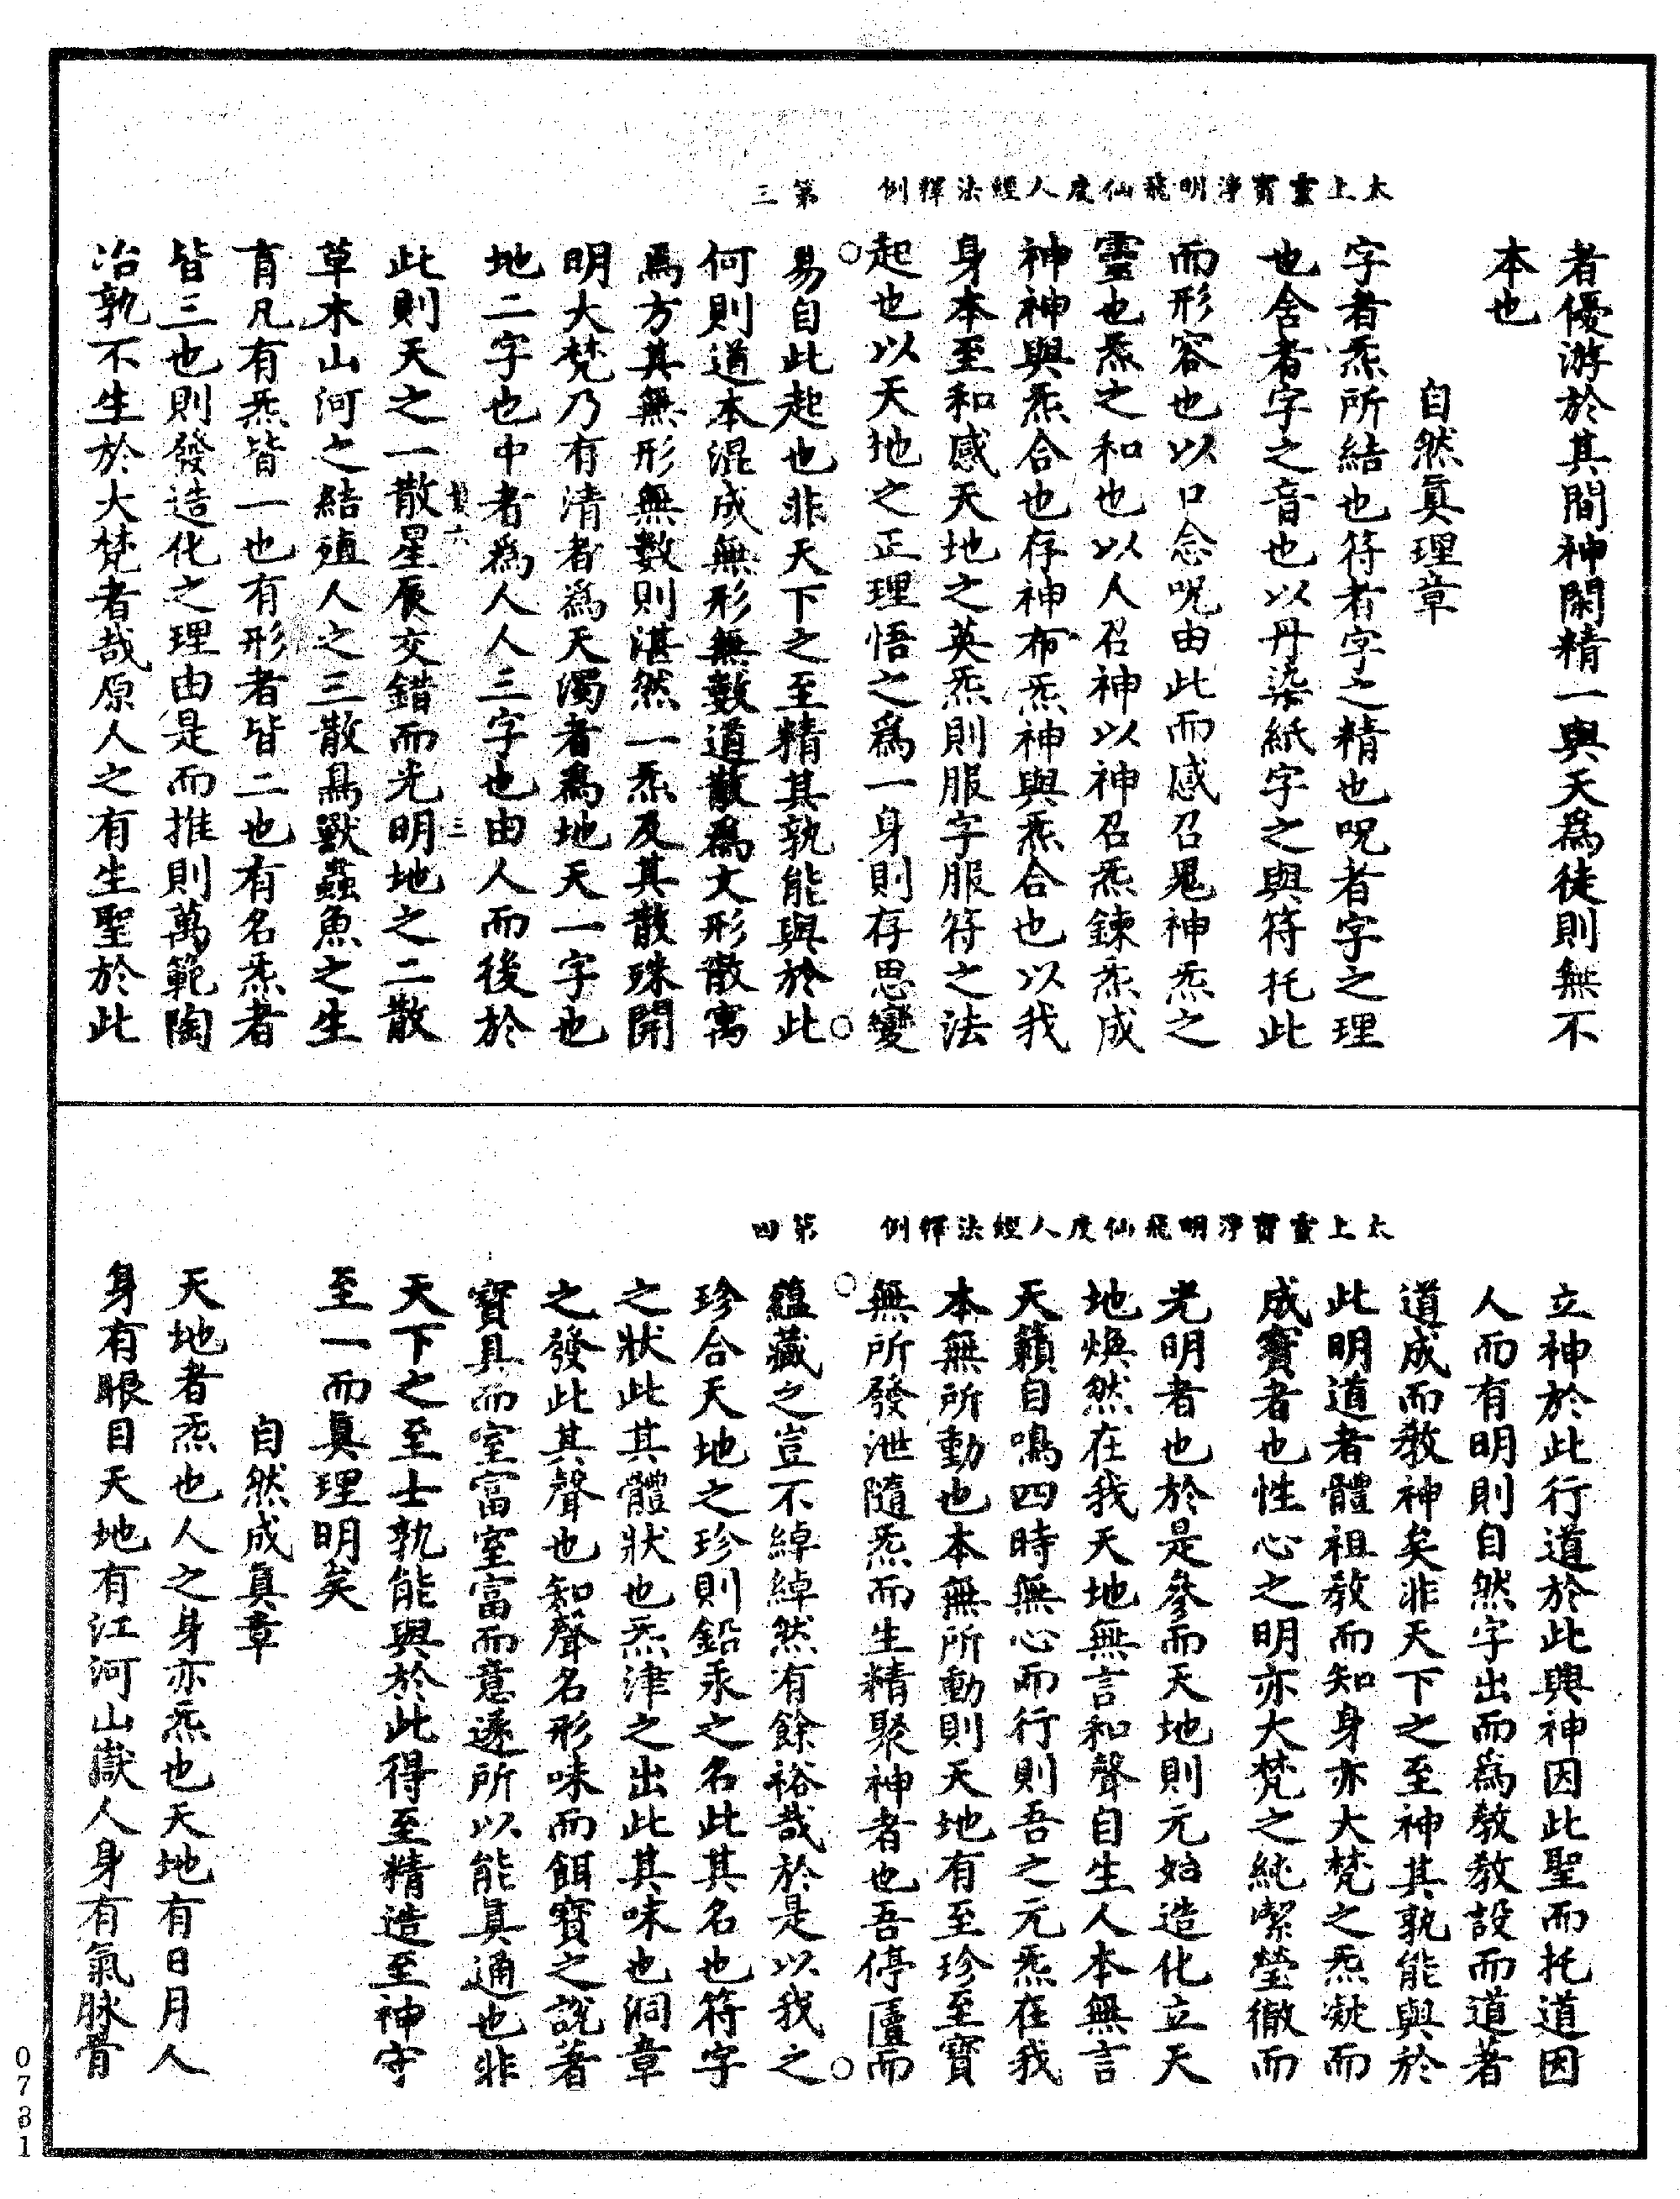 太上靈寶淨明飛仙度人經法釋例　第三
者優游於其間神閑精一與天爲徒則無不
本也
自然眞理章
字者炁所結也符者字之精也呪者字之理
也舍者字之音也以丹染紙字之與符托此
而形容也以口念呪由此而感召鬼神炁之
靈也炁之和也以人召神以神召炁鍊炁成
神神與炁合也存神布炁神與炁合也以我
身本至和感天地之英炁則服字服符之法
起也以天地之正理悟之爲一身則存思變
易自此起也非天下之至精其孰能與於此
何則道本混成無形無數道散爲文形散寓
爲方其無形無數則湛然一炁及其散殊開
明大梵乃有清者爲天濁者爲地天一字也
地二字也中者爲人人三字也由人而後於
六　三
此則天之一散星辰交錯而光明地之二散
草木山河之結殖人之三散鳥獸蟲魚之生
育凡有炁皆一也有形者皆二也有名炁者
皆三也則發造化之理由是而推則萬範陶
冶孰不生於大梵者哉原人之有生聖於此
太上靈寶淨明飛仙度人經法釋例　第四
立神於此行道於此興神因此聖而托道因
人而有明則自然字出而爲教教設而道著
道成而教神矣非天下之至神其孰能與於
此明道者體祖教而知身亦大梵之炁凝而
成寶者也性心之明亦大梵之純潔瑩徹而
光明者也於是參而天地則元始造化立天
地煥然在我天地無言和聲自生人本無言
天籟自鳴四時無心而行則吾之元炁在我
本無所動也本無所動則天地有至珍至寶
無所發泄隨炁而生精聚神者也吾停匵而
蘊藏之豈不綽綽然有餘裕哉於是以我之
珍合天地之珍則鉛汞之名此其名也符字
之狀此其體狀也炁津之出此其味也洞章
之發此其聲也知聲名形味而餌寶之說著
寶具而室富室富而意遂所以能眞通也非
天下之至士孰能與於此得至精造至神守
至一而眞理明矣
自然成眞章
天地者炁也人之身亦炁也天地有日月人
身有眼目天地有江河山嶽人身有氣脉骨
0731